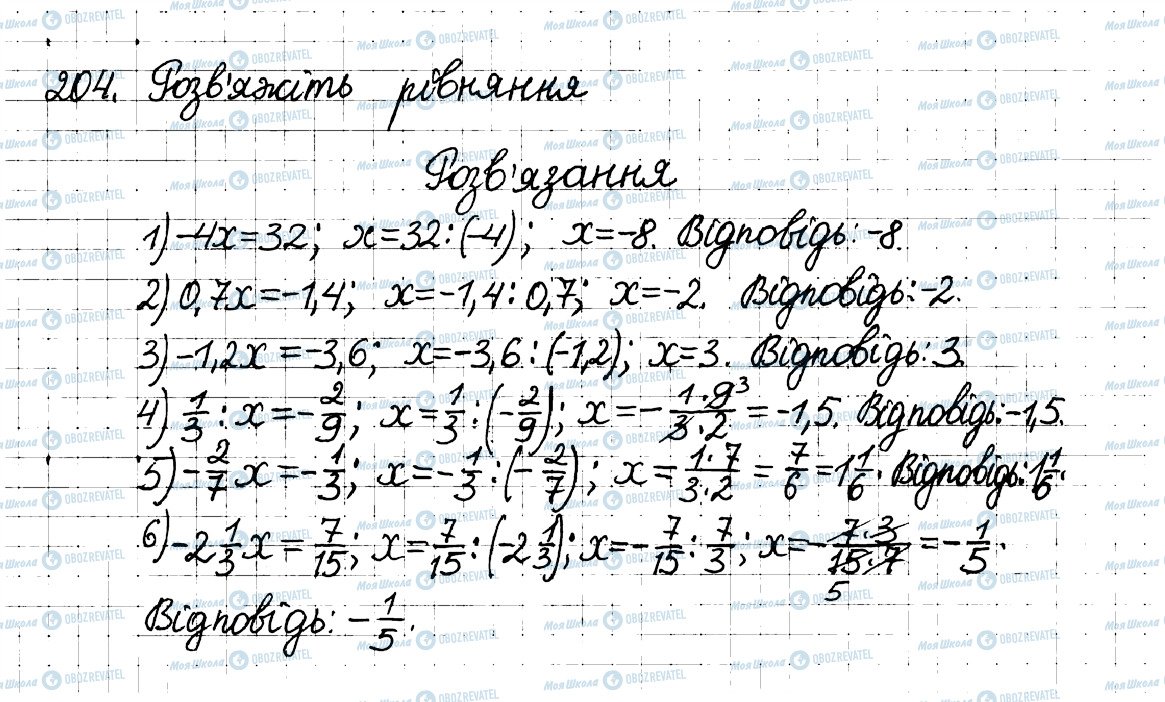 204. Розв'яжіть рівняння
Розв'язання
1) -4x=32; x=32:(-4); x=-8. Відповідь: -8.
2) 0,7x=-1,4; x=-1,4:0,7; x=-2. Відповідь: -2.
3) -1,2x=-3,6; x=-3,6:(-1,2); x=3. Відповідь: 3.
4) 1/3 : x = -2/9; x = 1/3 : (-2/9); x = - 1·9³/3·2 = -1,5. Відповідь: -1,5.
5) -2/7 x = -1/3; x = -1/3 : (-2/7); x = 1·7/3·2 = 7/6 = 1 1/6. Відповідь: 1 1/6.
6) -2 1/3 x = 7/15; x = 7/15 : (-2 1/3); x = -7/15 : 7/3; x = - 7·3/15·7 = -1/5.
5
Відповідь: -1/5.
Моя Школа OBOZREVATEL